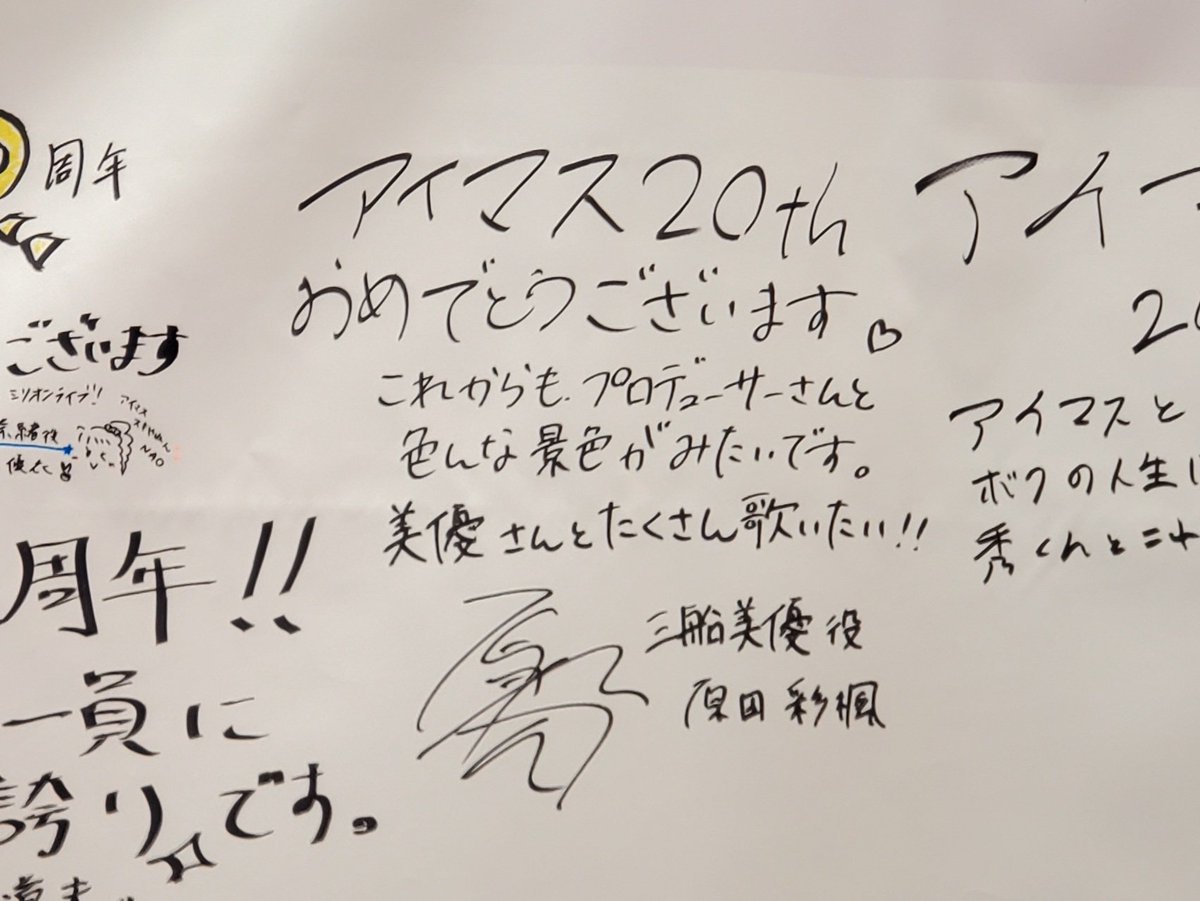 周年
ございます
ミリオンライブ!!
アイマス
周年!!
一員に
誇りです。
アイマス20th
おめでとうございます。♡
これからも、プロデューサーさんと
色んな景色がみたいです。
美優さんとたくさん歌いたい!!
三船美優役
原田彩楓
アイマ
アイマスと
ボクの人生
秀くんとこれ